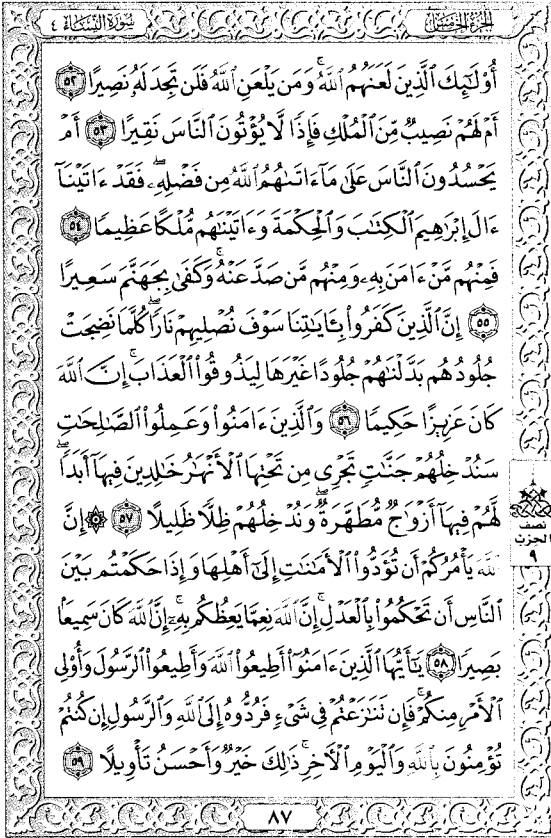 سُورَةُ النِّسَاءِ ٤
الجُزْءُ الخَامِسُ
أُوْلَٰٓئِكَ ٱلَّذِينَ لَعَنَهُمُ ٱللَّهُۖ وَمَن يَلْعَنِ ٱللَّهُ فَلَن تَجِدَ لَهُۥ نَصِيرًا ٥٢
أَمْ لَهُمْ نَصِيبٌ مِّنَ ٱلْمُلْكِ فَإِذًا لَّا يُؤْتُونَ ٱلنَّاسَ نَقِيرًا ٥٣ أَمْ
يَحْسُدُونَ ٱلنَّاسَ عَلَىٰ مَآ ءَاتَىٰهُمُ ٱللَّهُ مِن فَضْلِهِۦۖ فَقَدْ ءَاتَيْنَآ
ءَالَ إِبْرَٰهِيمَ ٱلْكِتَٰبَ وَٱلْحِكْمَةَ وَءَاتَيْنَٰهُم مُّلْكًا عَظِيمًا ٥٤
فَمِنْهُم مَّنْ ءَامَنَ بِهِۦ وَمِنْهُم مَّن صَدَّ عَنْهُۚ وَكَفَىٰ بِجَهَنَّمَ سَعِيرًا
٥٥ إِنَّ ٱلَّذِينَ كَفَرُوا۟ بِـَٔايَٰتِنَا سَوْفَ نُصْلِيهِمْ نَارًا كُلَّمَا نَضِجَتْ
جُلُودُهُم بَدَّلْنَٰهُمْ جُلُودًا غَيْرَهَا لِيَذُوقُوا۟ ٱلْعَذَابَۗ إِنَّ ٱللَّهَ
كَانَ عَزِيزًا حَكِيمًا ٥٦ وَٱلَّذِينَ ءَامَنُوا۟ وَعَمِلُوا۟ ٱلصَّٰلِحَٰتِ
سَنُدْخِلُهُمْ جَنَّٰتٍ تَجْرِى مِن تَحْتِهَا ٱلْأَنْهَٰرُ خَٰلِدِينَ فِيهَآ أَبَدًاۖ
لَّهُمْ فِيهَآ أَزْوَٰجٌ مُّطَهَّرَةٌۖ وَنُدْخِلُهُمْ ظِلًّا ظَلِيلًا ٥٧ ۞ إِنَّ
ٱللَّهَ يَأْمُرُكُمْ أَن تُؤَدُّوا۟ ٱلْأَمَٰنَٰتِ إِلَىٰٓ أَهْلِهَا وَإِذَا حَكَمْتُم بَيْنَ
ٱلنَّاسِ أَن تَحْكُمُوا۟ بِٱلْعَدْلِۚ إِنَّ ٱللَّهَ نِعِمَّا يَعِظُكُم بِهِۦٓۗ إِنَّ ٱللَّهَ كَانَ سَمِيعًۢا
بَصِيرًا ٥٨ يَٰٓأَيُّهَا ٱلَّذِينَ ءَامَنُوٓا۟ أَطِيعُوا۟ ٱللَّهَ وَأَطِيعُوا۟ ٱلرَّسُولَ وَأُو۟لِى
ٱلْأَمْرِ مِنكُمْۖ فَإِن تَنَٰزَعْتُمْ فِى شَىْءٍ فَرُدُّوهُ إِلَى ٱللَّهِ وَٱلرَّسُولِ إِن كُنتُمْ
تُؤْمِنُونَ بِٱللَّهِ وَٱلْيَوْمِ ٱلْءَاخِرِۚ ذَٰلِكَ خَيْرٌ وَأَحْسَنُ تَأْوِيلًا ٥٩
نصف
الحزب
٩
٨٧